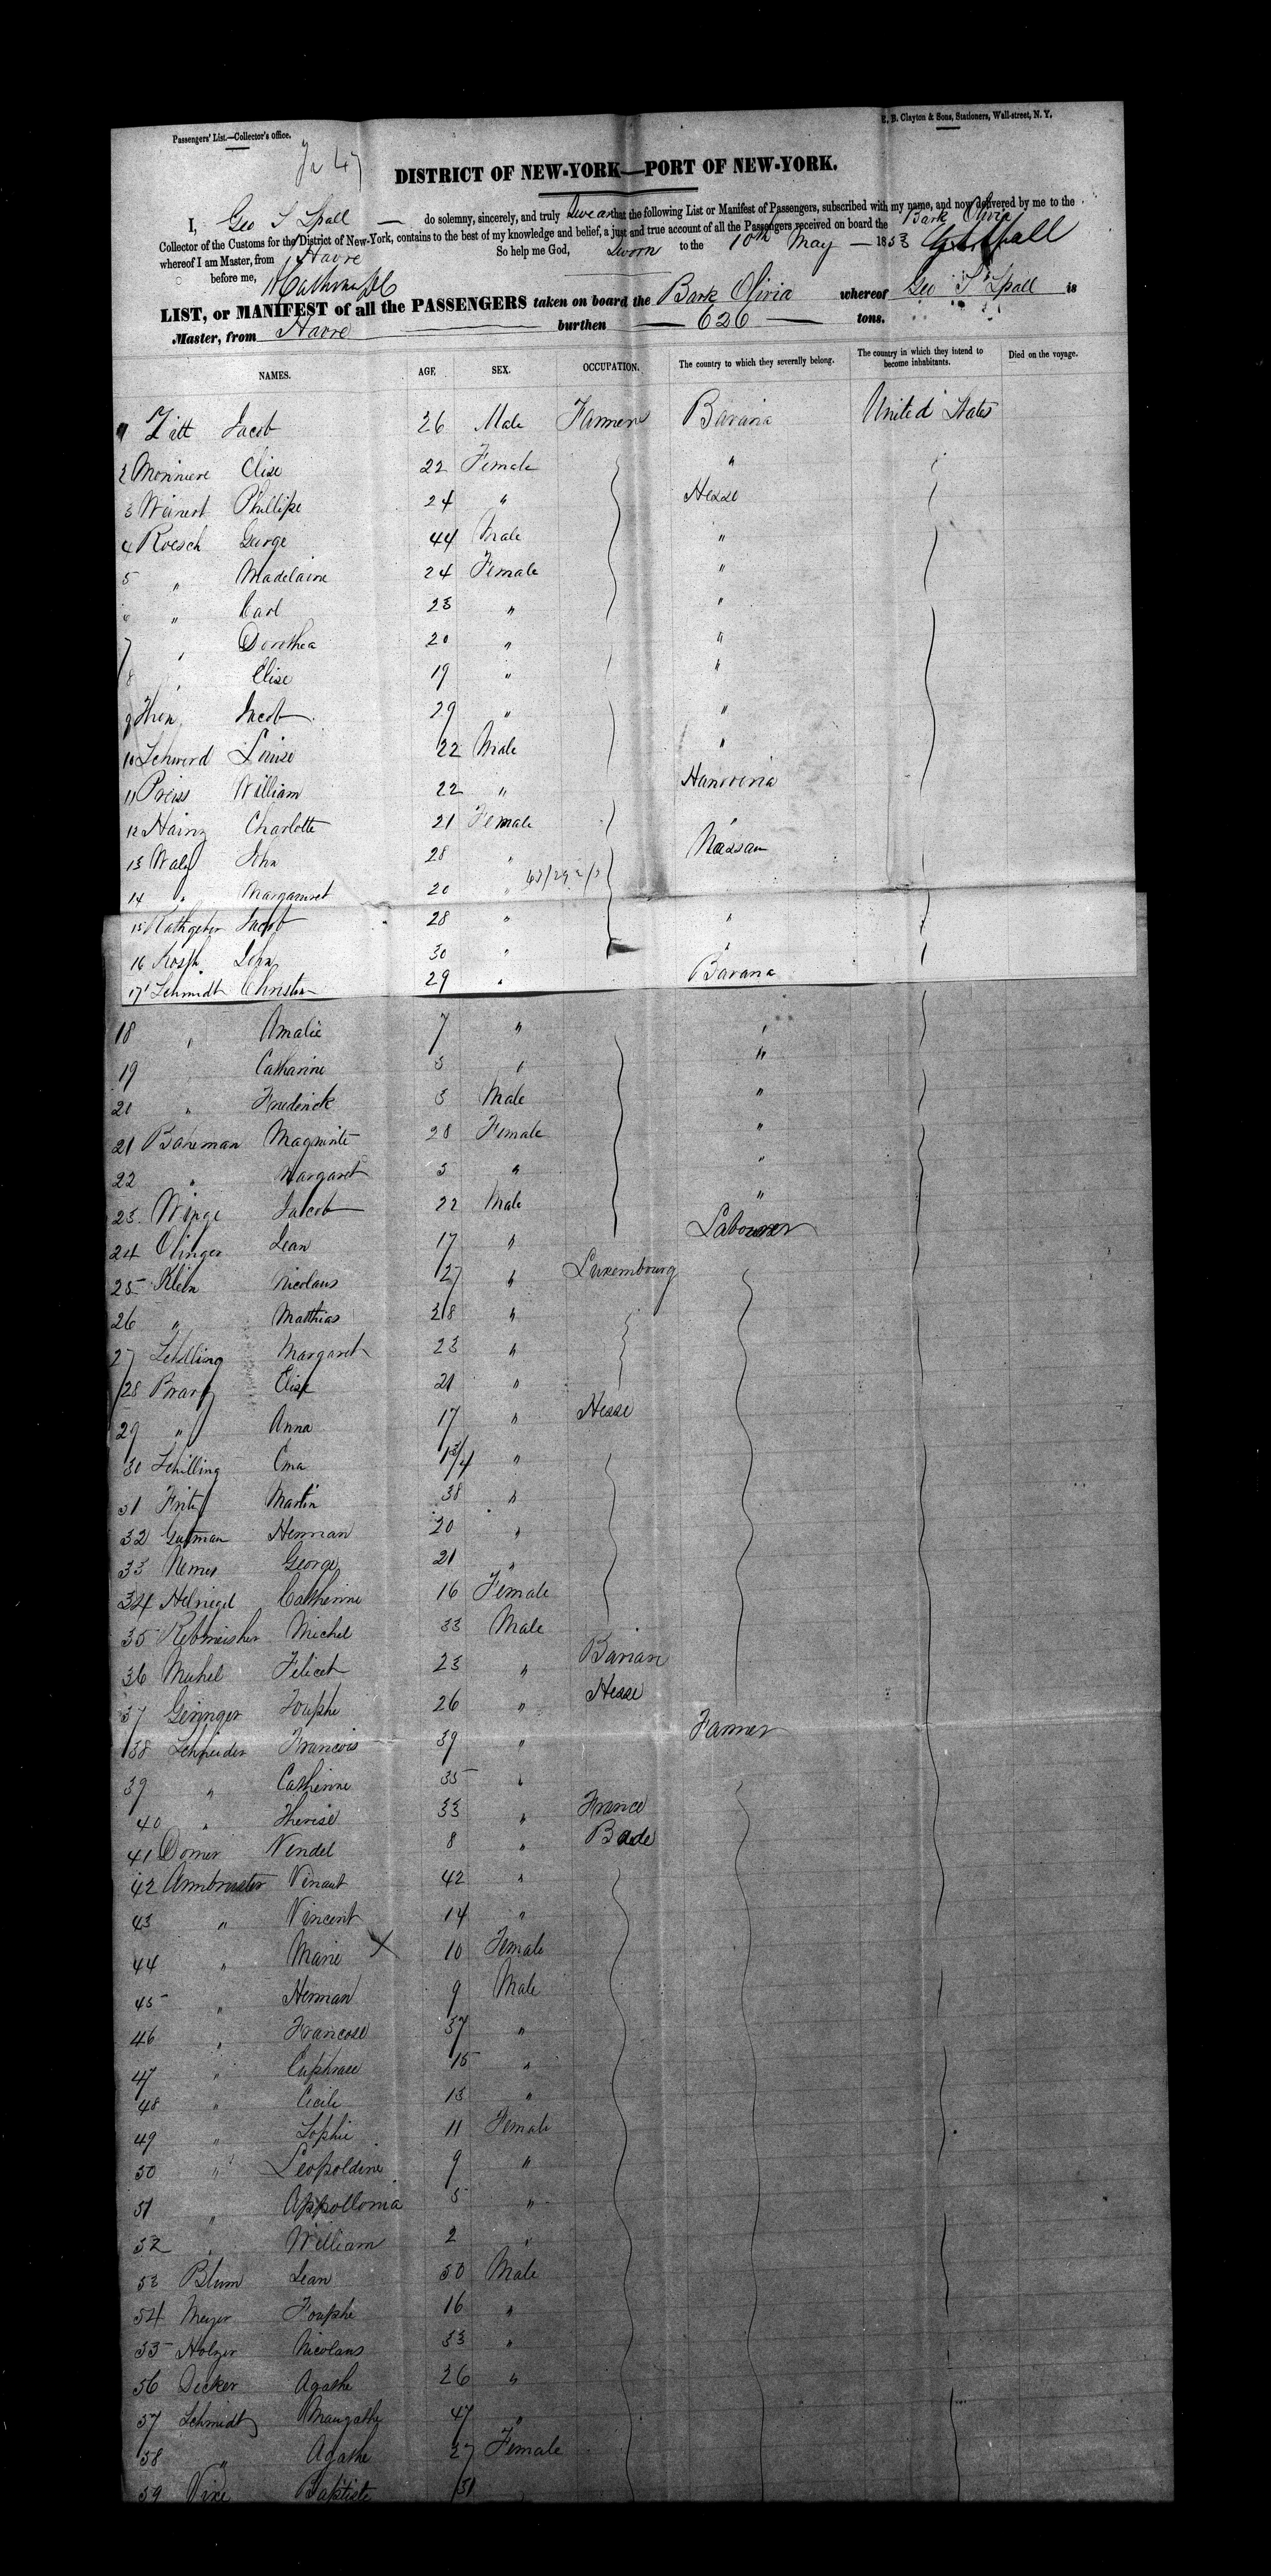 Passengers' List.—Collector's office.
E. B. Clayton & Sons, Stationers, Wall-street, N. Y.
DISTRICT OF NEW-YORK—PORT OF NEW-YORK.
I, Geo S Spall do solemny, sincerely, and truly swear that the following List or Manifest of Passengers, subscribed with my name, and now delivered by me to the
Collector of the Customs for the District of New-York, contains to the best of my knowledge and belief, a just and true account of all the Passengers received on board the Bark Olivia
whereof I am Master, from Havre So help me God,
Sworn to the 10th May 1853
before me,
LIST, or MANIFEST of all the PASSENGERS taken on board the Bark Olivia whereof Geo S Spall is
Master, from Havre burthen 626 tons.
NAMES. AGE SEX. OCCUPATION. The country to which they severally belong. The country in which they intend to become inhabitants. Died on the voyage.
1 Jacob 26 Male Farmers Bavaria United States
2 Elise 22 Female "
3 Weinert Phillipe 24 " Hesse
4 Roesch George 44 Male "
5 " Madelaine 24 Female "
6 " Carl 23 " "
7 " Dorothea 20 " "
8 " Elise 19 " "
9 Jacob 29 " "
10 Louise 22 Male "
11 Preiss William 22 " Hanoveria
12 Charlotte 21 Female "
13 John 28 " Nassau
14 " Margaruret 20 "
15 Rathgeber Jacob 28 " "
16 John 30 " "
17 Schmidt Christian 29 " Bavaria
18 " Amalie 7 " "
19 Catharine 3 " "
20 " Frederick 3 Male "
21 Baneman 28 Female "
22 " Margaret 3 " "
23 Jacob 22 Male "
24 Olinger Jean 17 " Labourer
25 Klein Nicolaus 27 " Luxembourg
26 " Matthias 28 "
27 Schilling Margaret 23 "
28 Elise 21 "
29 " Anna 17 " Hesse
30 Schilling 1 3/4 "
31 Fritz Martin 38 "
32 Gutman Herman 20 "
33 George 21 "
34 Catherine 16 Female
35 Michel 33 Male
36 23 " Bavare
37 Geringer 26 " Hesse
38 Schneider Francois 39 " Farmer
39 " Catherine 35 "
40 " Therise 33 " France
41 Domer Vendel 8 " Bade
42 Armbruster 42 "
43 " Vincent 14 "
44 " Marie X 10 Female
45 " Herman 9 Male
46 " 37 "
47 " 15 "
48 " Cicile 13 "
49 " Sophie 11 Female
50 " Leopoldine 9 "
51 " Appollonia 5 "
52 " William 2 "
53 Blum Jean 50 Male
54 Meyer 16 "
55 Holzer Nicolaus 33 "
56 Decker Agathe 26 "
57 Schmidt 47 "
58 " Agathe 27 Female
59 Baptiste 31